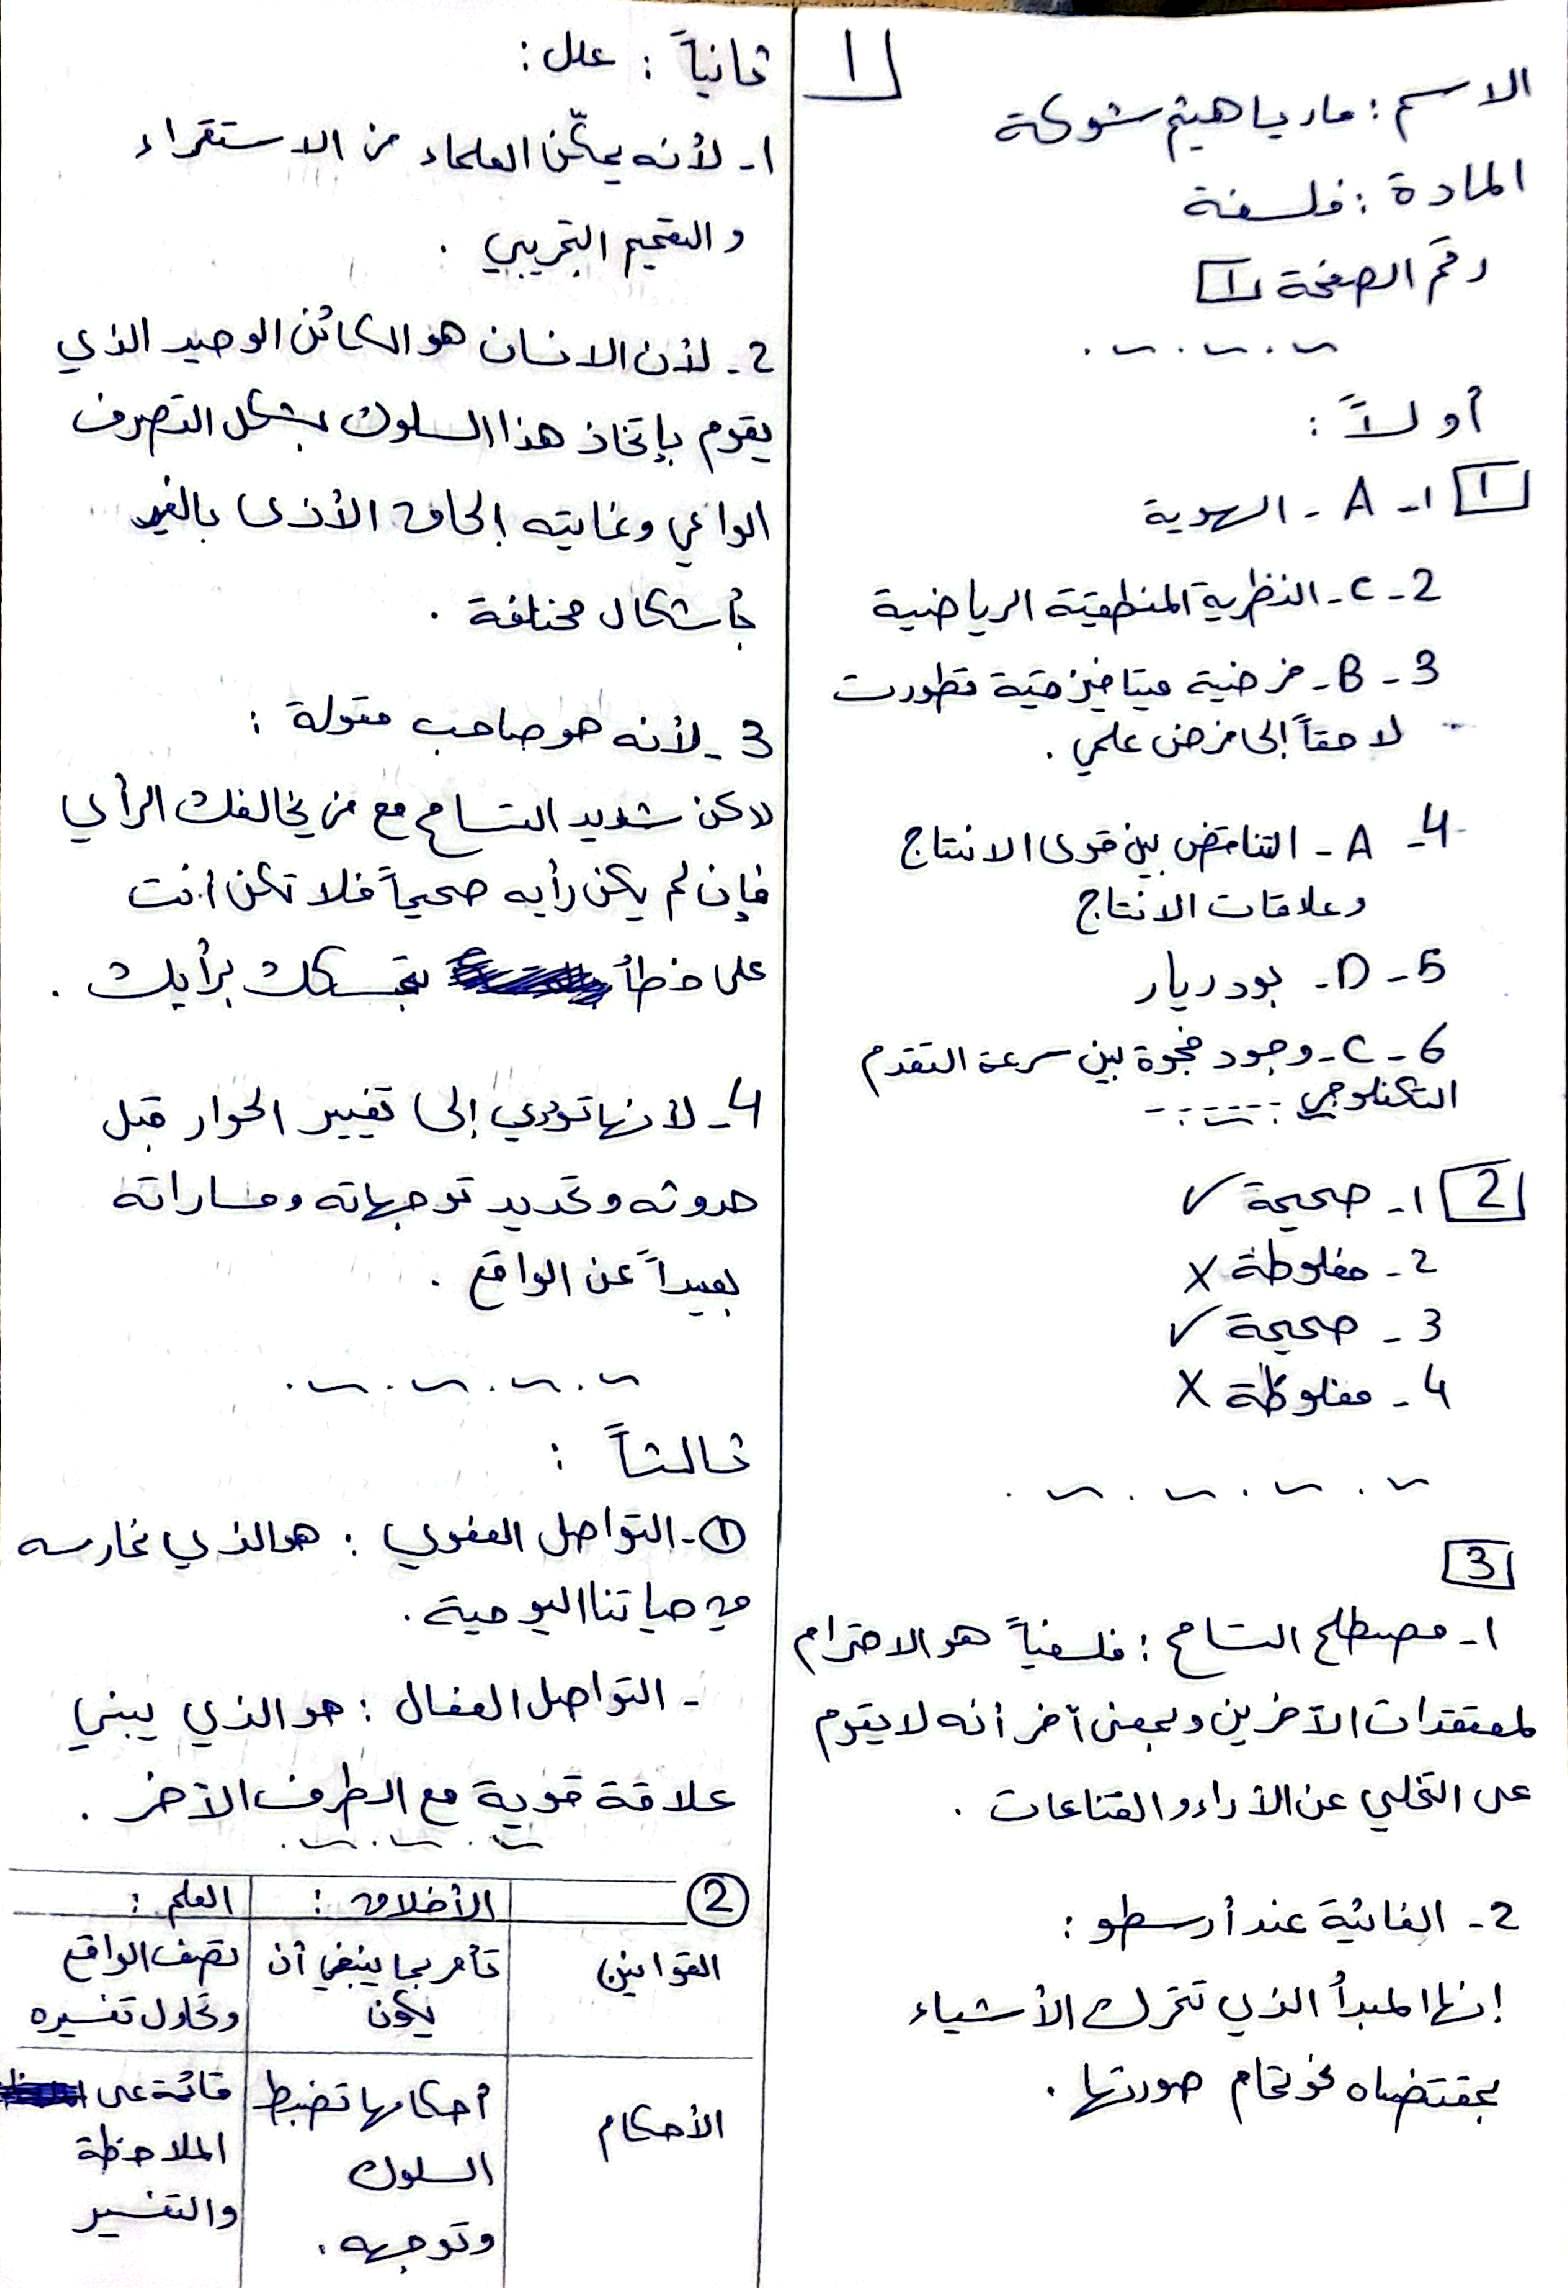 1
الاسم : ماريا هيثم شوكة
المادة : فلسفة
رقم الصفحة 1
أولاً :
1 1- A - الهوية
2 - C - النظرية المنطقية الرياضية
3 - B - فرضية ميتافيزيقية تطورت
لاحقاً إلى فرض علمي .
4- A - التناقض بين قوى الانتاج
وعلاقات الانتاج
5 - D - بودريار
6 - C - وجود فجوة بين سرعة التقدم
التكنلوجي ......
2 1- صحيحة ✓
2 - مغلوطة X
3 - صحيحة ✓
4 - مغلوطة X
3
1- مصطلح التسامح : فلسفياً هو الاحترام
لمعتقدات الآخرين وبمعنى آخر أنه لا يقوم
على التخلي عن الآراء والقناعات .
2- الغائية عند أرسطو :
إنها المبدأ الذي تتحرك الأشياء
بمقتضاه نحو تمام صورتها .
ثانياً : علل :
1- لأنه يمكّن العلماء من الاستقراء
و التعميم التجريبي .
2- لأن الانسان هو الكائن الوحيد الذي
يقوم بإتخاذ هذا السلوك بشكل التصرف
الواعي وغايته إلحاق الأذى بالغير
بأشكال مختلفة .
3- لأنه هو صاحب مقولة :
لاكن شديد التسامح مع من يخالفك الرأي
فإن لم يكن رأيه صحيحاً فلا تكن أنت
على خطأ بتمسكك برأيك .
4- لأنها تؤدي إلى تغيير الحوار قبل
حدوثه وتحديد توجهاته ومساراته
بعيداً عن الواقع .
ثالثاً :
1- التواصل العفوي : هو الذي نمارسه
في حياتنا اليومية .
- التواصل الفعال : هو الذي يبني
علاقة قوية مع الطرف الآخر .
2 الأخلاق : العلم :
القوانين تأمر بما ينبغي أن تصف الواقع
يكون وتحاول تفسيره
الأحكام أحكامها تضبط قائمة على
السلوك الملاحظة
وتوجهه . والتفسير